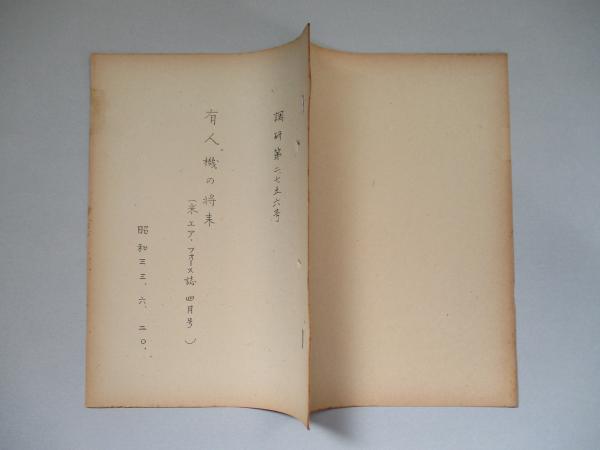 調研第二七五六号
有人機の将来
(米エア・フォース誌 四月号)
昭和三三、六、二〇、